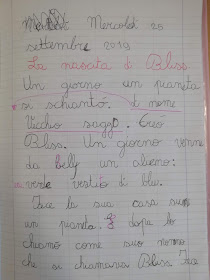 Mercoledì 25
settembre 2019
La nascita di Bliss
Un giorno un pianeta
si schiantò. di nome
Vecchio saggio. Creò
Bliss. Un giorno venne
da un alieno:
verde vestito di blu.
Fece la sua casa su
un pianeta. E dopo lo
chiamò come suo nonno
che si chiamava Bliss